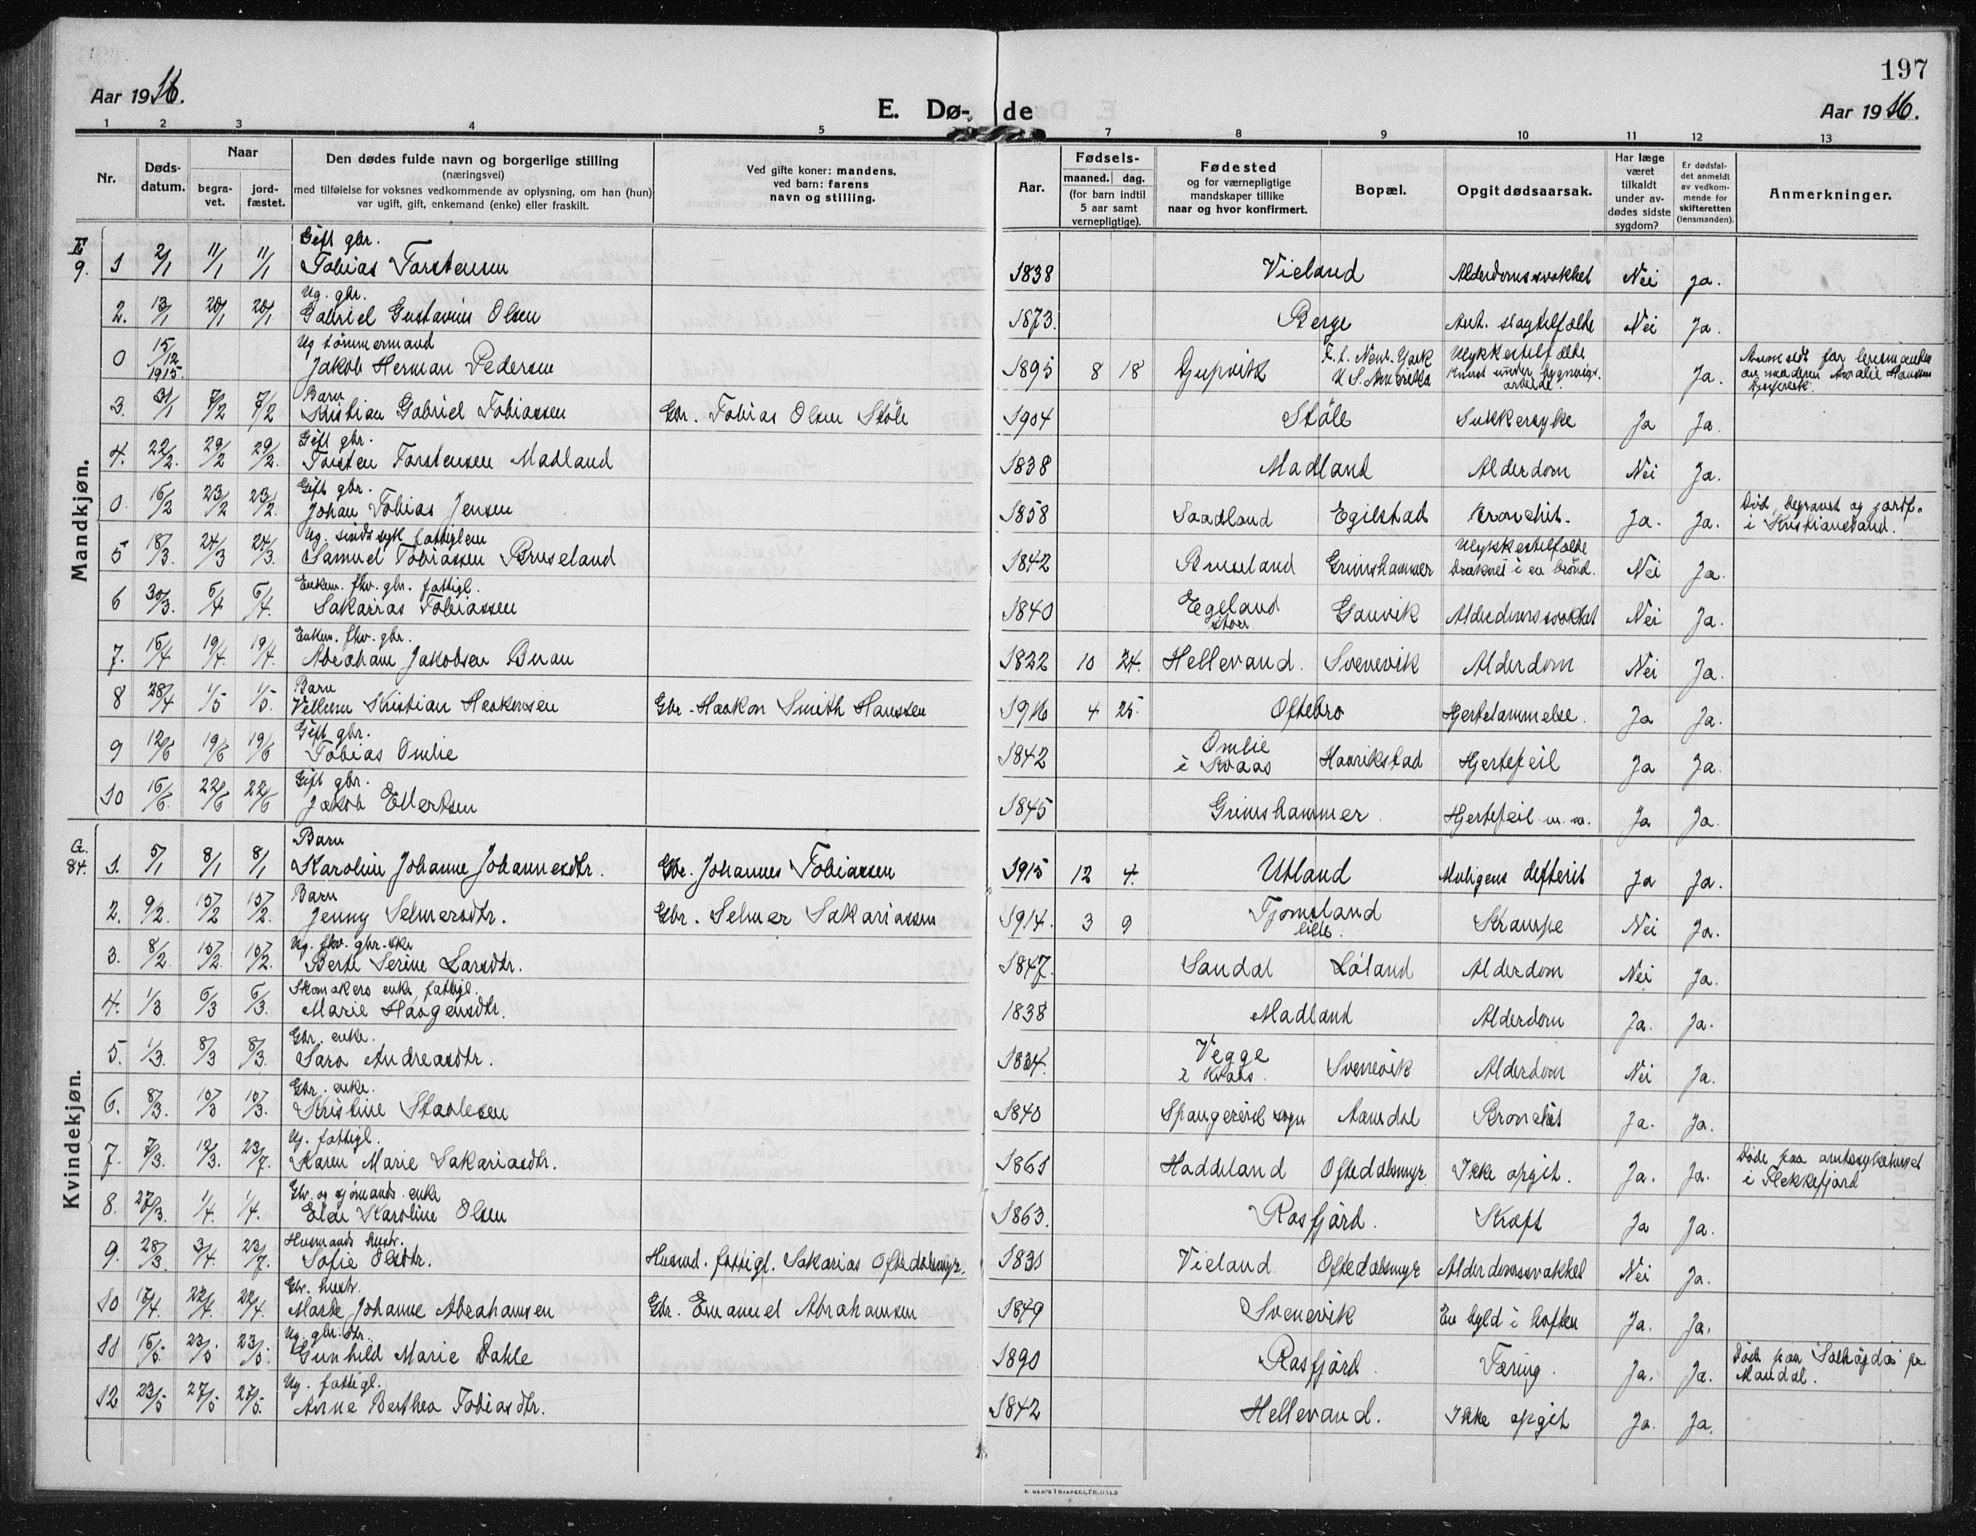 197
Aar 1916.
E. Dø- de
Aar 1916.
1 2 3 4 5 7 8 9 10 11 12 13
Nr.
Døds-
datum.
Naar
begra-
vet.
jord-
fæstet.
Den dødes fulde navn og borgerlige stilling
(næringsvei)
med tilføielse for voksnes vedkommende av oplysning, om han (hun)
var ugift, gift, enkemand (enke) eller fraskilt.
Ved gifte koner: mandens,
ved barn: farens
navn og stilling.
Aar.
Fødsels-
maaned. dag.
(for barn indtil
5 aar samt
vernepligtige).
Fødested
og for værnepligtige
mandskaper tillike
naar og hvor konfirmert.
Bopæl.
Opgit dødsaarsak.
Har læge
været
tilkaldt
under av-
dødes sidste
sygdom?
Er dødsfal-
det anmeldt
av vedkom-
mende for
skifteretten
(lensmanden).
Anmerkninger.
Mandkjøn.
9.
Gift gbr.
1 2/1 11/1 11/1 Tobias Torstensen 1838 Vieland Alderdomssvakhet Nei Ja.
Ug. gbr.
2. 13/1 20/1 20/1 Gabriel Gustavius Olsen 1873. Berge Ant. slagtilfælde Nei Ja.
Ug tømmermand
0 15/12 1915. Jakob Herman Pedersen 1895 8 18 Djupvik New-York U.S. Amerika Ulykkestilfælde Ja.
Barn
3. 31/1 7/2 7/2 Kristian Gabriel Tobiassen Gbr. Tobias Olsen Støle 1904 Støle Sukkersyke Ja Ja.
Gift gbr.
4. 22/2. 29/2 29/2. Torsten Torstensen Madland 1838 Madland Alderdom Nei Ja.
Gift gbr.
0. 16/2 23/2 23/2. Johan Tobias Jensen 1858 Saadland Egilstad Bronchit. Ja. Ja. Død, begravet og jordf.
i Kristiansand.
Ug. sindssyk fattiglem
5 18/3. 24/3 24/3. Samuel Tobiassen Bruseland 1842 Bruseland Grimshammer Ulykkestilfælde
Druknet i en brønd. Nei Ja.
Enkem. fhv. gbr. fattigl.
6 30/3. 6/4 6/4. Sakarias Tobiassen 1840 Egeland
stor Gauvik Alderdomssvakhet Nei Ja.
Enkem. fhv. gbr.
7. 15/4 19/4. 19/4. Abraham Jakobsen Buan 1822 10 24. Hellevand. Svenevik Alderdom Nei Ja.
Barn
8 28/4 1/5 1/5. Vilhelm Kristian Haakonsen Gbr. Haakon Smith Hanssen 1916 4 25. Oftebro Hjertelammelse. Ja Ja.
Gift gbr.
9 12/6 19/6 19/6 Tobias Omlie 1842 Omlie
i Kvaas Haavikstad Hjertefeil Ja Ja.
Gift gbr.
10 16/6. 22/6 22/6 Jakob Ellertsen 1845 Grimshammer. Hjertefeil m.m. Ja Ja.
Kvindekjøn.
G.
84.
Barn
1. 5/1 8/1 8/1 Karoline Johanne Johannesdtr. Gbr. Johannes Tobiassen 1915 12 4. Utland Muligens difterit Ja Ja.
Barn
2. 9/2. 15/2 15/2. Jenny Selmersdtr. Gbr. Selmer Sakariassen 1914. 3 9 Fjomsland
lille. Krampe Nei Ja.
Ug. fhv. gbr.ske
3. 8/2. 15/2. 15/2. Berte Serine Larsdtr. 1847. Sandal Løland Alderdom Nei Ja.
Skomakers enke, fattigl.
4. 1/3 6/3 6/3. Marie Haagensdtr. 1838 Madland Alderdom Ja. Ja.
Gbr. enke.
5. 1/3. 8/3 8/3. Sara Andreasdtr. 1834. Vegge
i Kvaas. Svenevik Alderdom Nei Ja.
Gbr. enke.
6. 8/3. 15/3 15/3. Kristine Staalesen 1840 Spangereid sogn Aamdal Bronchit Ja. Ja.
Ug. fattigl.
7. 7/3. 12/3. 23/7. Karen Marie Sakariasdtr. 1861 Haddeland Oftedalsmyr. Ikke opgit. Ja. Ja. Døde paa amtssykehuset
i Flekkefjord
Gbr. og sjømands enke
8. 27/3. 1/4. 1/4. Elen Karoline Olsen 1863. Rosfjord. Kræft Ja Ja.
Husmands hustr.
9. 28/3. 3/4 23/7. Sofie Olsdtr. Husmd. fattigl. Sakarias Oftedalsmyr. 1831 Vieland. Oftedalsmyr Alderdomssvakhet Nei Ja.
Gbr. hustr.
10 17/4 22/4 22/4. Marte Johanne Abrahamsen Gbr. Emanuel Abrahamsen 1849 Svenevik En byld i hoften Ja. Ja.
Ug. gbr.dtr.
11 16/5 23/5 23/5. Gunhild Marie Dahle 1890 Rosfjord. Tæring. Ja. Ja. Døde paa "Solhøgda" pr
Mandal.
Ug. fattigl.
12 23/5 27/5 27/5. Anne Berthea Tobiasdtr. 1842 Hellevand. Ikke opgit Ja. Ja.